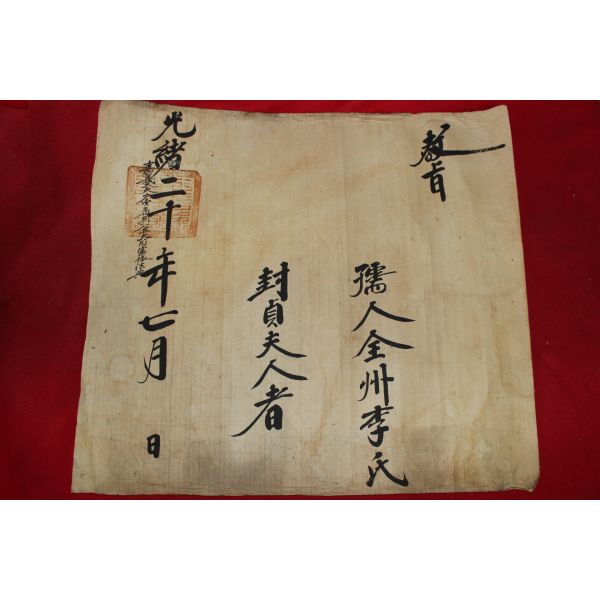 教旨
孺人全州李氏
封貞夫人者
光緖二十年七月　日